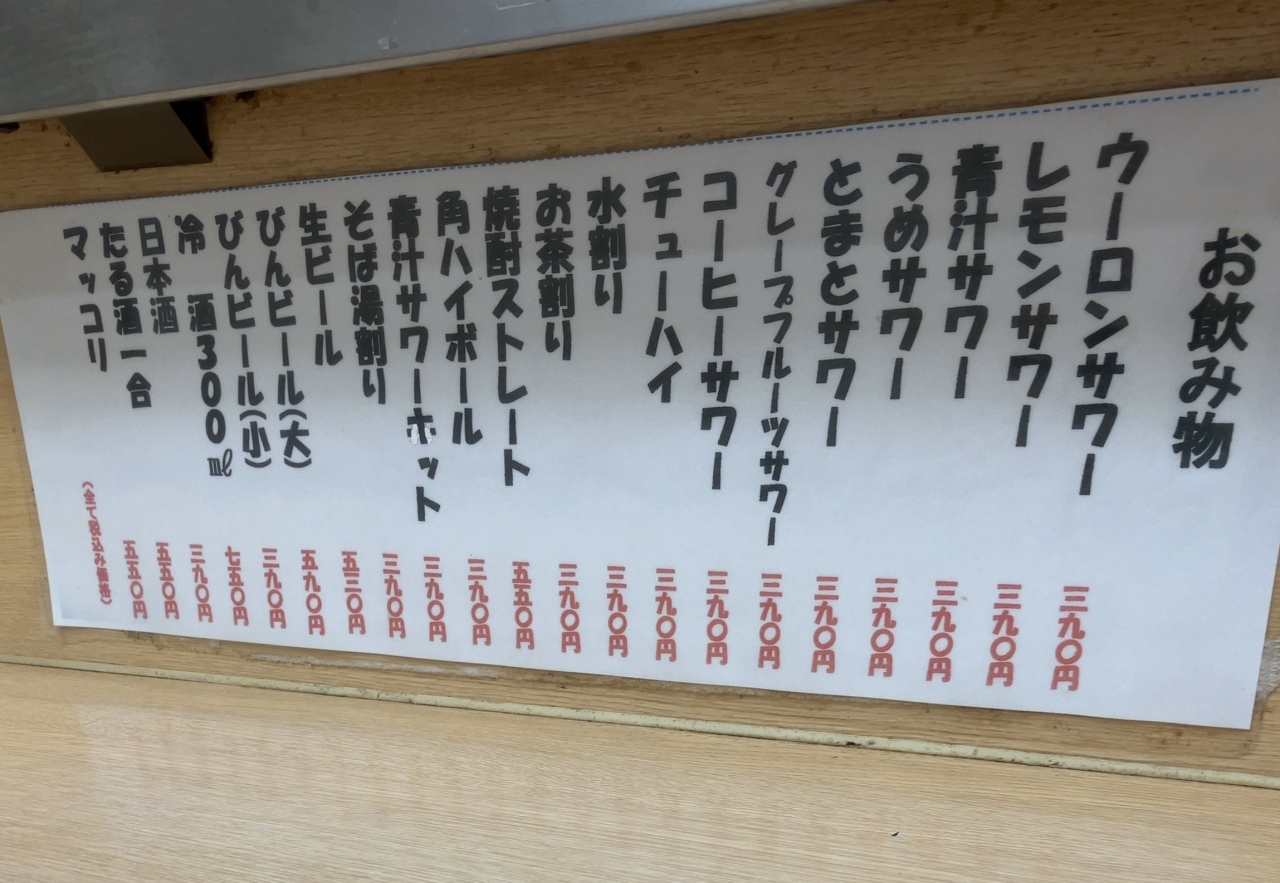 お飲み物
ウーロンサワー 三九〇円
レモンサワー 三九〇円
青汁サワー 三九〇円
うめサワー 三九〇円
とまとサワー 三九〇円
グレープフルーツサワー 三九〇円
コーヒーサワー 三九〇円
チューハイ 三九〇円
水割り 三九〇円
お茶割り 三九〇円
焼酎ストレート 五五〇円
角ハイボール 三九〇円
青汁サワーホット 三九〇円
そば湯割り 三九〇円
生ビール 五三〇円
びんビール(大) 五九〇円
びんビール(小) 三九〇円
冷 酒300㎖ 七五〇円
日本酒 三九〇円
たる酒一合 五五〇円
マッコリ 五五〇円
(全て税込み価格)